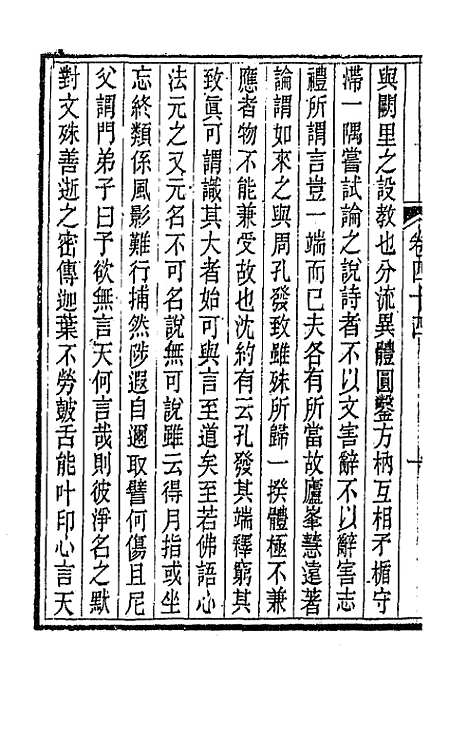 與闕里之設教也分流異體圓鑿方枘互相矛楯守
滯一隅嘗試論之說詩者不以文害辭不以辭害志
禮所謂言豈一端而已夫各有所當故廬峯慧遠著
論謂如來之與周孔發致雖殊所歸一揆體極不兼
應者物不能兼受故也沈約有云孔發其端釋窮其
致眞可謂識其大者始可與言至道矣至若佛語心
法元之又元名不可名說無可說雖云得月指或坐
忘終類係風影難行捕然陟遐自邇取譬何傷且尼
父謂門弟子曰予欲無言天何言哉則彼淨名之默
對文殊善逝之密傳迦葉不勞皷舌能叶印心言天
卷四十四